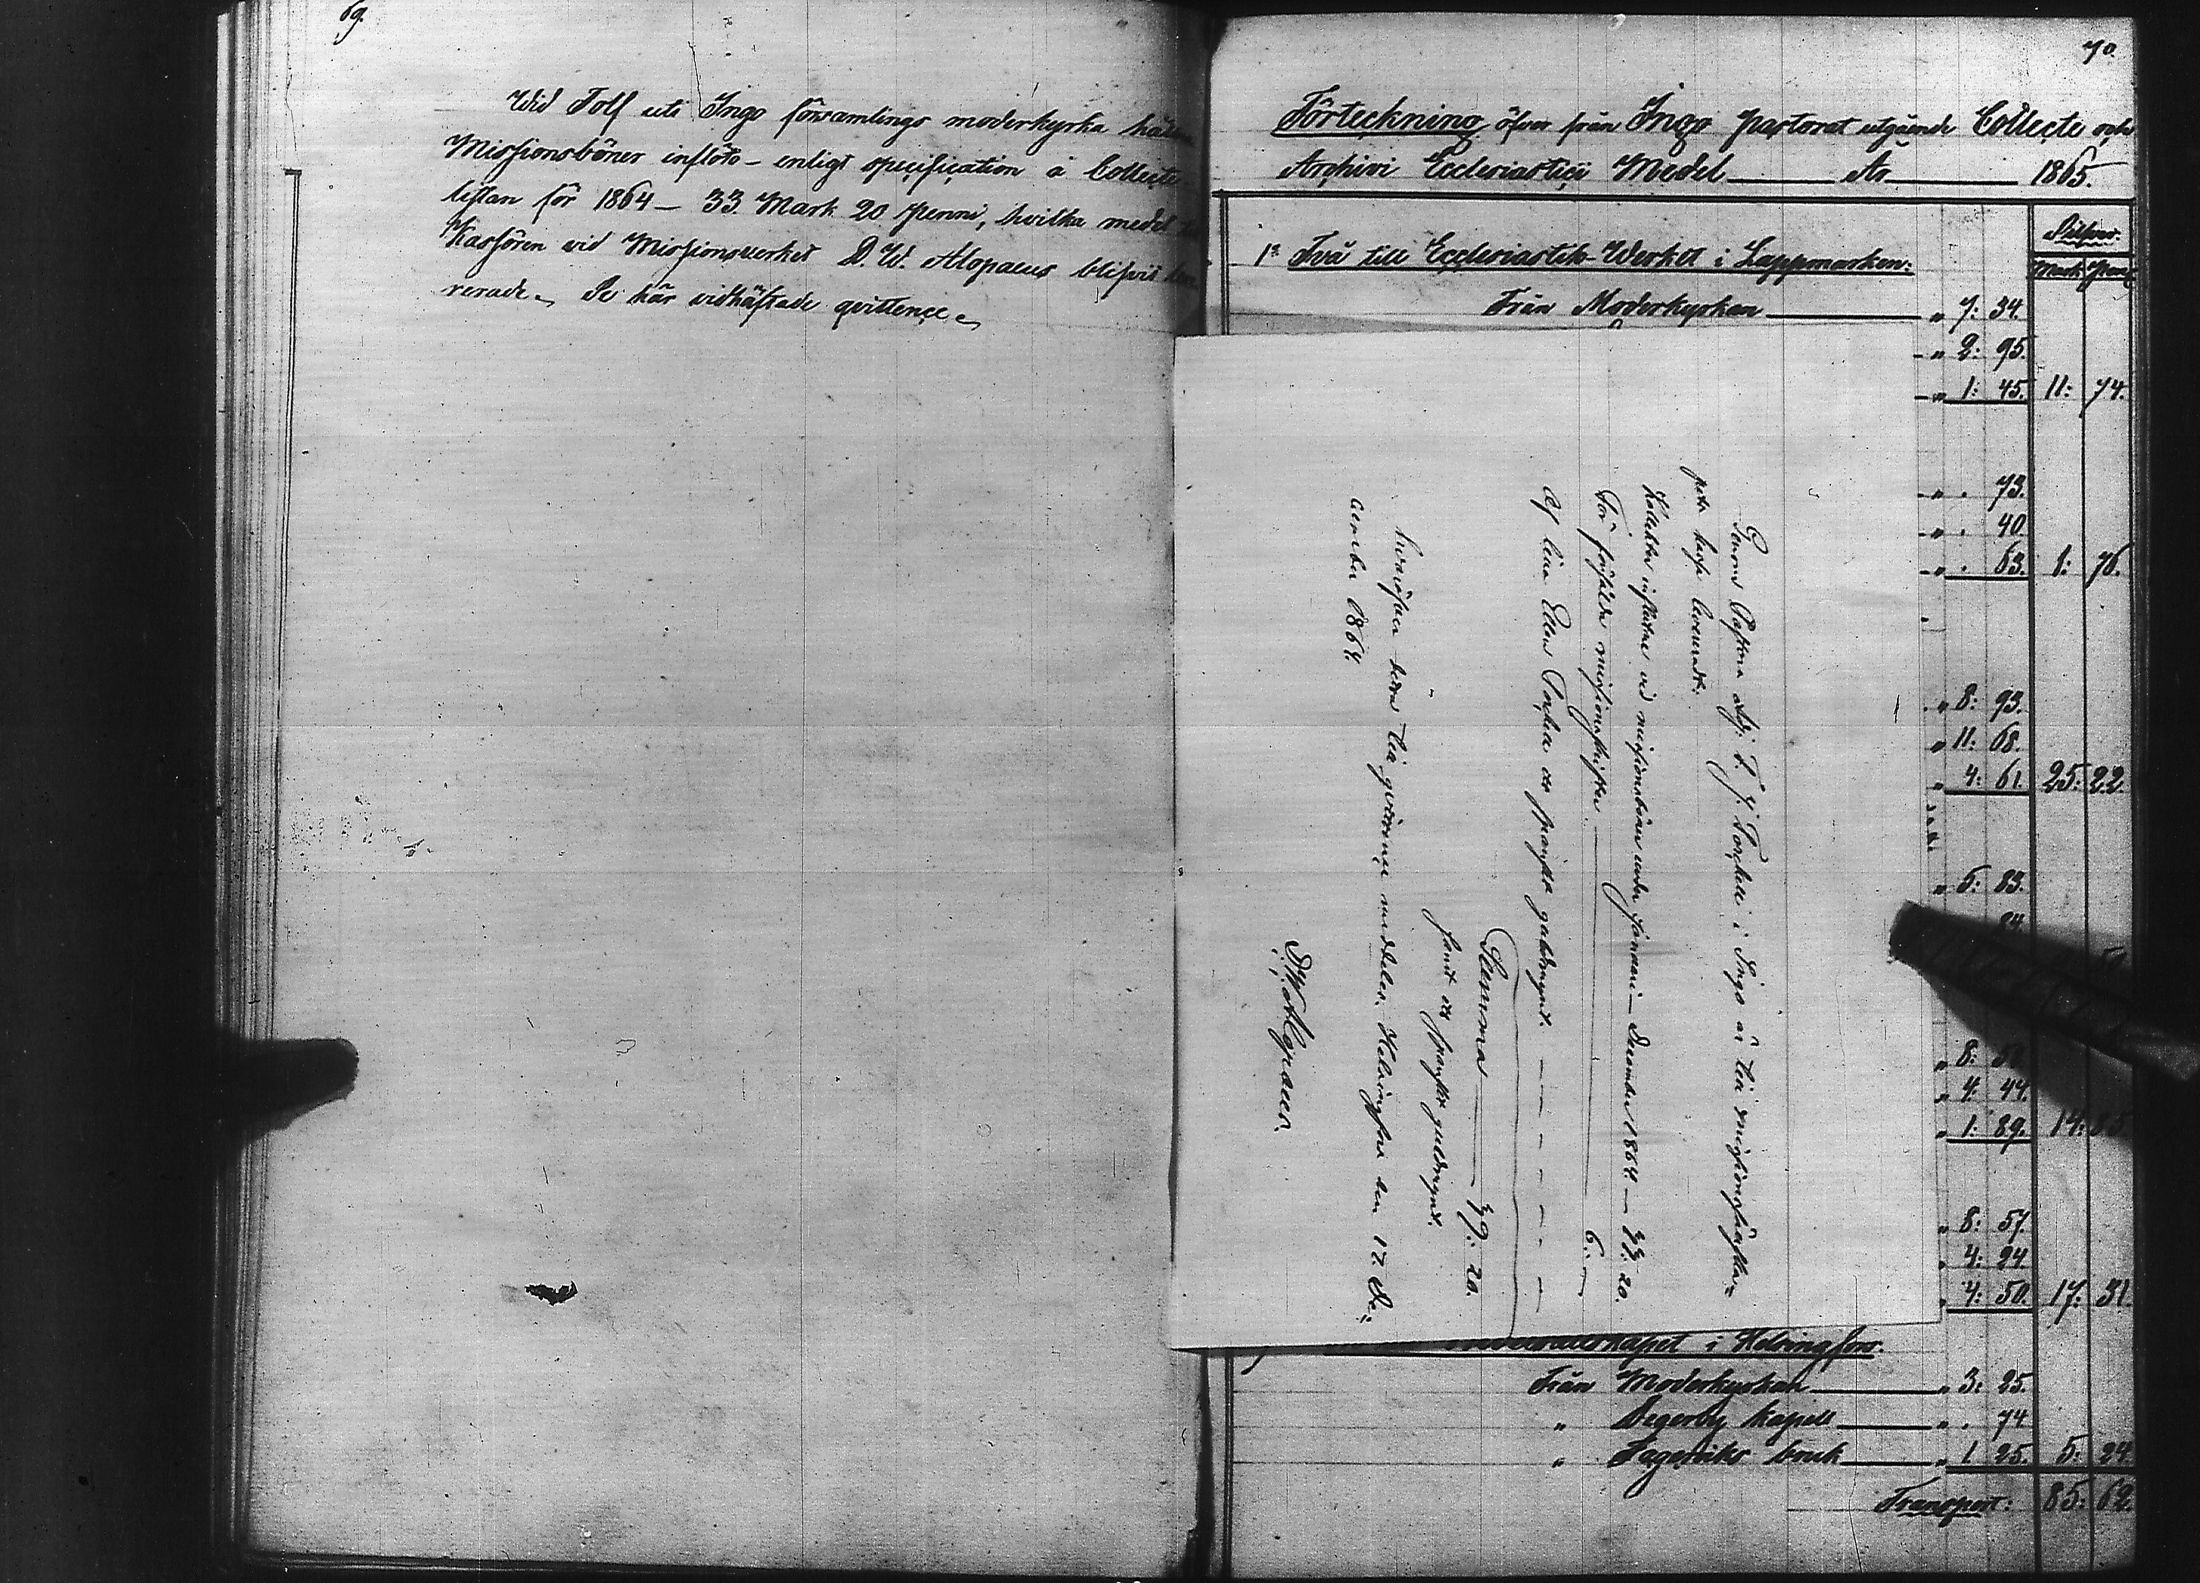 69.
Wid Tolf uti Ingo församlings moderkyrka
Missionsböner inflöto – enligt specification å Collecte
listan för 1864 – 33. Mark 20 penni, hvilka medel
Kassören vid Missionsverket D. W. Alopaeus blifvit
rerade. Se här vidhäftade qvittence.
70.
Förteckning öfver från Ingo pastorat utgående Collecte och
Archivi Ecclesiastici Medel År 1865.
Silfver.
Mark Penni
1º Två till Ecclesiastik-Werket i Lappmarken:
Från Moderkyrkan " 7: 34.
" 2: 95.
" 1: 45. 11: 74.
" . 73.
" . 40.
" . 63. 1: 76.
" 8: 93.
" 11: 68.
" 4: 61. 25: 22.
" 5: 83.
84.
" 8:
" 4: 44.
" 1: 89. 14: 85
" 8: 57.
" 4: 24
" 4: 50. 17: 31.
i Helsingfors.
Från Moderkyrkan " 3: 25.
" Degerby Kapell " . 74
" Fagerviks bruk " 1 25. 5: 24.
Transport: 85: 62
Genom Pastorn i Ingo är till missionssällska=
pets kassa levererat.
Kollekter influtne vid missionsbönen under Januari – December 1864. — 33: 20.
För försålda missionsskrifter — 6: —
Af
Summa — 39: 20.
hvaröfver detta till qvittence meddelas. Helsingfors den 17. De=
cember 1864.
D. W. Alopaeus.